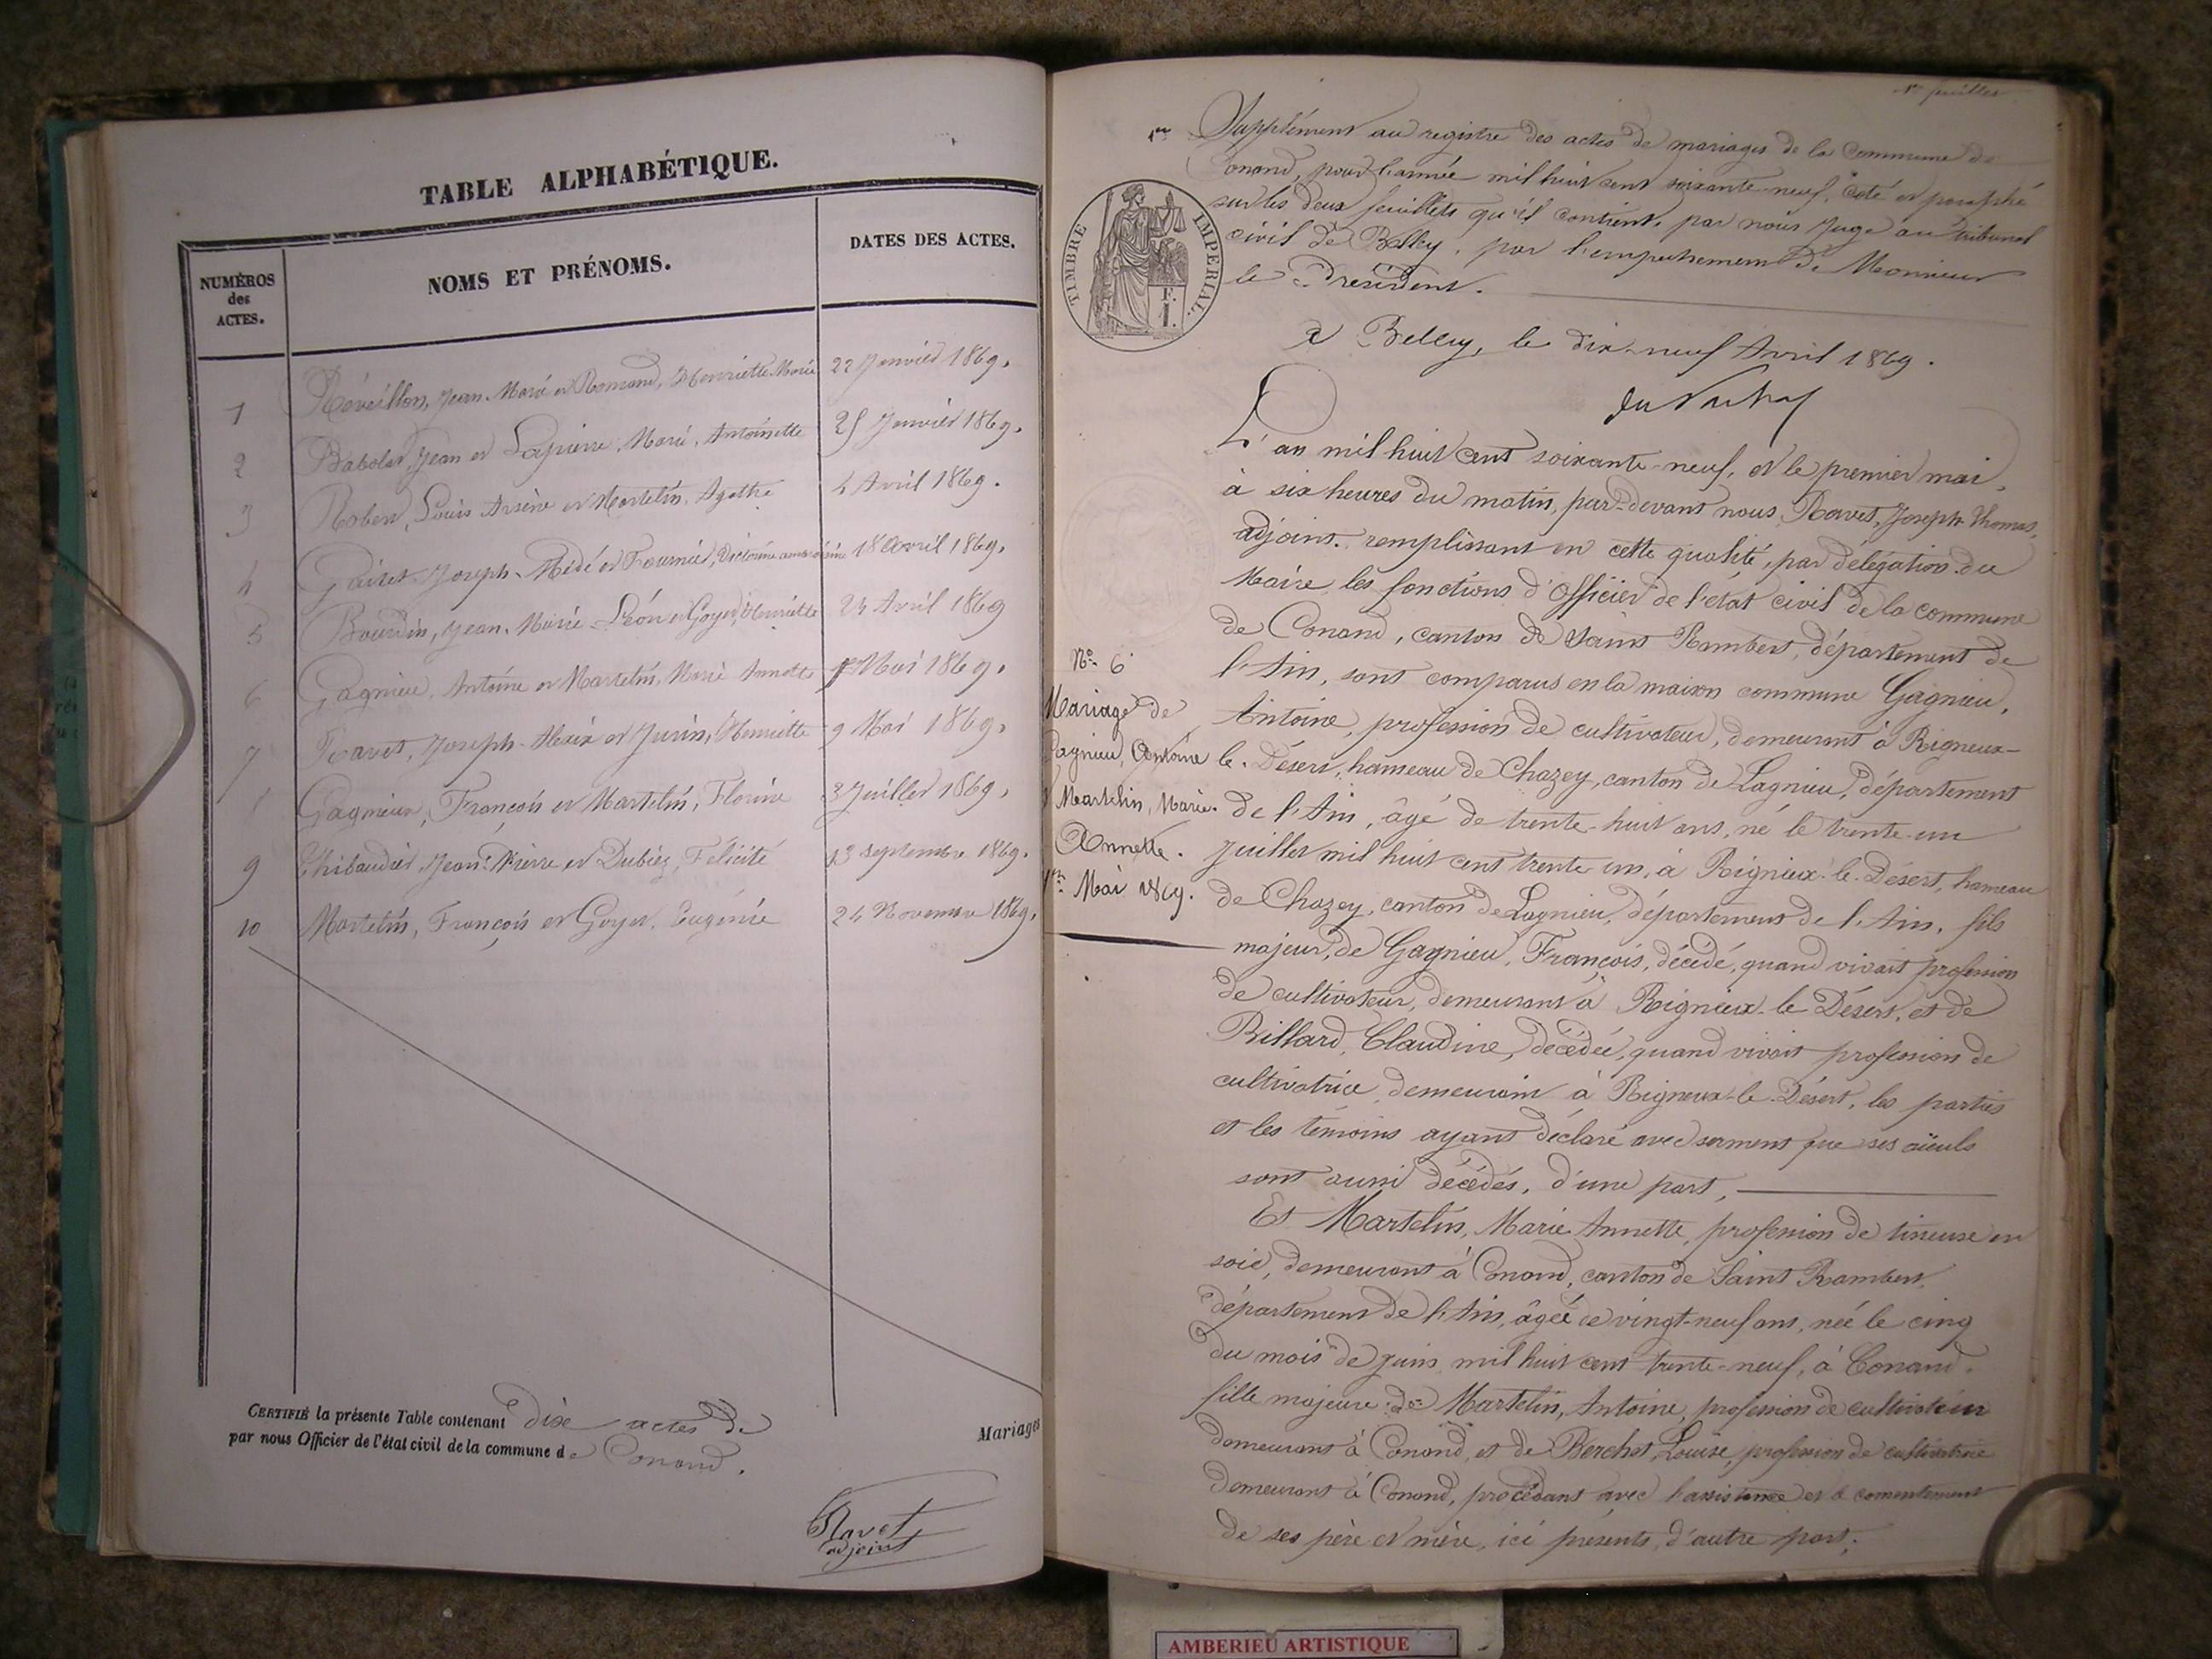 TABLE ALPHABÉTIQUE.
NUMÉROS des ACTES.
NOMS ET PRÉNOMS.
DATES DES ACTES.
1 Réveillon, Jean-Marie et Romand, Henriette-Marie 22 Janvier 1869.
2 Babolat Jean et Lapierre, Marie, Antoinette 25 Janvier 1869.
3 Robert, Louis Arsène et Martelin, Agathe 4 Avril 1869.
4 Joseph et Fournier, 18 avril 1869.
5 Bourdin, Jean-Marie-Léon et Goyet, Henriette 24 Avril 1869
6 Gagnieu, Antoine et Martelin, Marie Annette 1er Mai 1869.
7 Ravet, Joseph-Alexix et Jurin, Henriette 9 Mai 1869.
Gagnieux, François et Martelin, Florine 3 Juillet 1869.
9 Thibaudier, Jean-Pierre et Dubiez, Félicité 13 septembre 1869.
10 Martelin, François et Goyet, Eugénie 24 Novembre 1869.
CERTIFIÉ la présente Table contenant dix actes de Mariages
par nous Officier de l'état civil de la commune de Conand.
Ravet
adjoint
1er feuillet
1er Supplément au registre des actes de mariages de la Commune de
Conand, pour l'année mil huit cent soixante-neuf, coté et paraphé
sur les deux feuillets qu'il contient, par nous Juge au tribunal
civil de Belley, par l'empêchement de Monsieur
le Président.
TIMBRE IMPÉRIAL.
F.
1.
à Belley, le dix-neuf Avril 1869.
L'an mil huit cent soixante-neuf, et le premier mai,
à six heures du matin, par-devant nous Ravet, Joseph Thomas,
adjoint, remplissant en cette qualité, par délégation du
Maire, les fonctions d'Officier de l'état civil de la commune
de Conand, canton de Saint Rambert, département de
l'Ain, sont comparus en la maison commune Gagnieu,
Antoine, profession de cultivateur, demeurant à Rigneux-
le-Désert, hameau de Chazey, canton de Lagnieu, département
de l'Ain, âgé de trente-huit ans, né le trente-un
juillet mil huit cent trente un, à Rignieux-le-Désert, hameau
de Chazey, canton de Lagnieu, département de l'Ain, fils
majeur, de Gagnieu, François, décédé, quand vivait profession
de cultivateur, demeurant à Rignieux-le-Désert, et de
Billard, Claudine, décédée, quand vivait profession de
cultivatrice, demeurant à Rigneux-le-Désert, les parties
et les témoins ayant déclaré avec serment que ses aïeuls
sont aussi décédés, d'une part,
Et Martelin, Marie Annette, profession de tisseuse en
soie, demeurant à Conand, canton de Saint Rambert,
département de l'Ain, âgée de vingt-neuf ans, née le cinq
du mois de juin mil huit cent trente-neuf, à Conand,
fille majeure de Martelin, Antoine, profession de cultivateur
demeurant à Conand, et de Berchet, Louise, profession de cultivatrice
demeurant à Conand, procédant avec l'assistance et le consentement
de ses père et mère, ici présents, d'autre part;
No. 6
Mariage de
Gagnieu, Antoine
et Martelin, Marie-
Annette.
1er Mai 1869.
AMBERIEU ARTISTIQUE